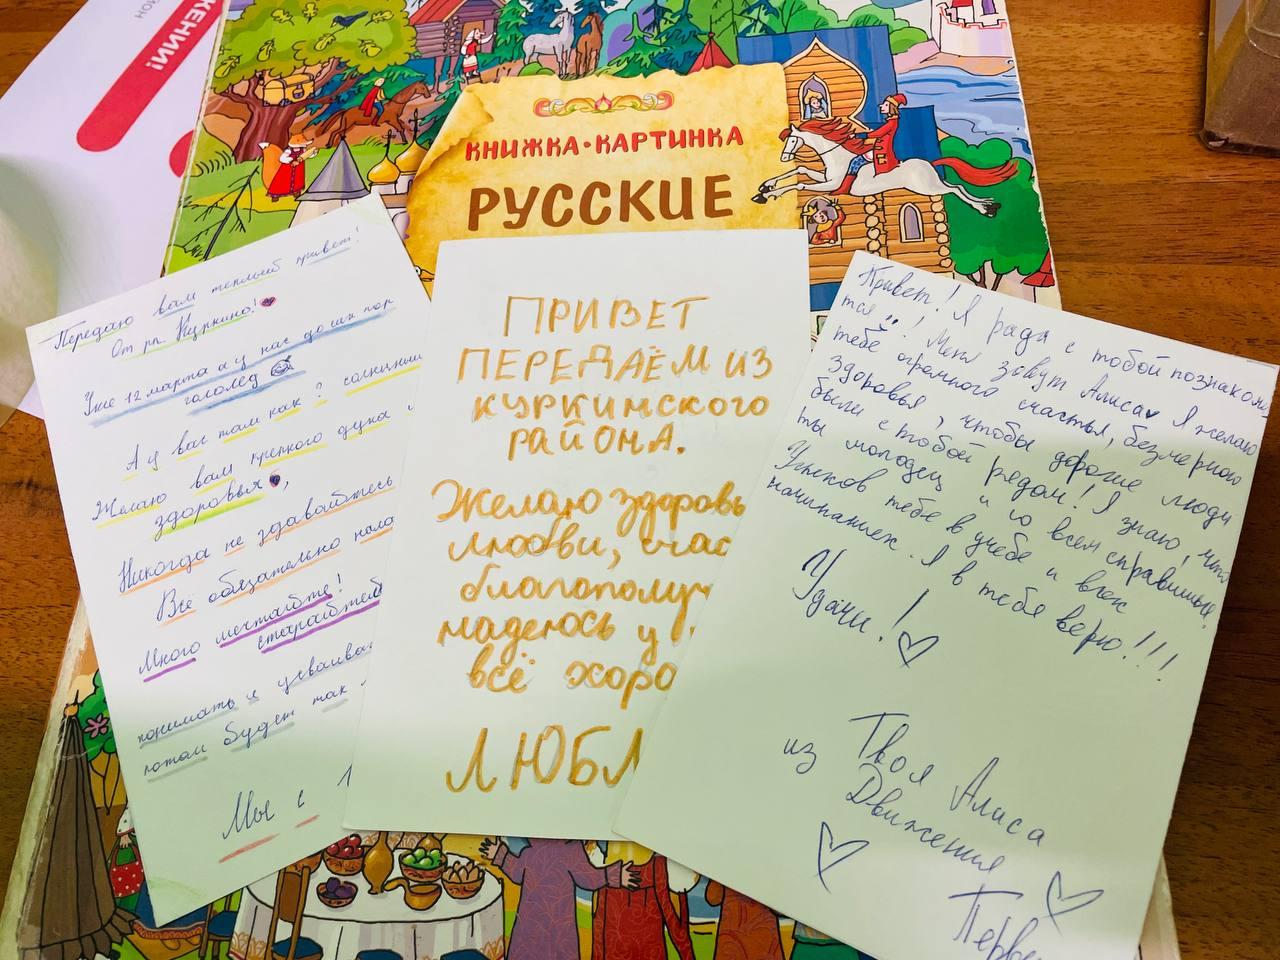 ЖЕНИИ!
КНИЖКА•КАРТИНКА
РУССКИЕ
Передаю вам теплый привет!
От рп. Куркино!
Уже 12 марта а у нас до сих пор
гололед
А у вас там как? солнышко
Желаю вам крепкого духа и
здоровья,
Никогда не здавайтесь
Всё обязательно нала
Много мечтайте!
старайтесь
понимать и усваивать
потом будет так
Мы с
ПРИВЕТ
ПЕРЕДАЁМ ИЗ
КУРКИНСКОГО
РАЙОНА.
Желаю здоровь
любви, счас
благополуч
надеюсь у
всё хоро
ЛЮБЛ
Привет! Я рада с тобой познакоми
ться ! Меня зовут Алиса Я желаю
тебе огромного счастья, безмерного
здоровья, чтобы дорогие люди
были с тобой рядом! Я знаю, что
ты молодец и со всем справишься,
Успехов тебе в учёбе и всех
начинаниях. Я в тебя верю!!!
Удачи!
Твоя Алиса
из Движения
Перв